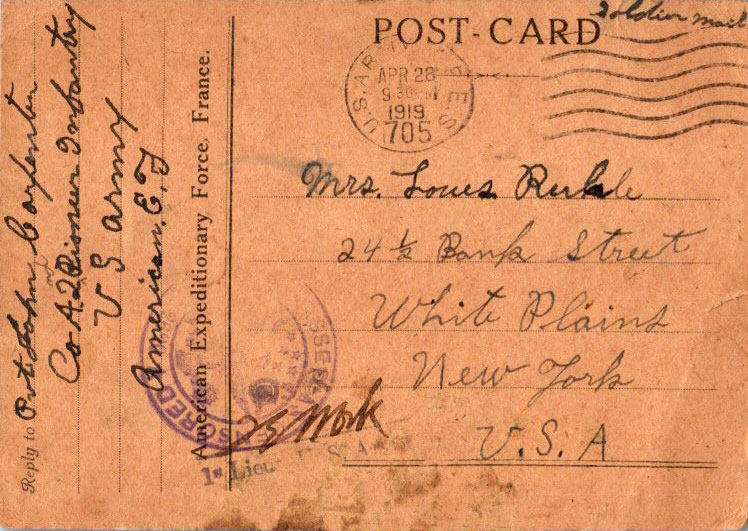 Soldier Mail
POST-CARD
U.S. AR
ES
APR. 28
9 30 M
1919
705
Mrs. Louis
24 ½ Bank Street
White Plains
New York
U.S.A
Reply to Pvt. John Carpenter
Co A 2nd Pioneer Infantry
U S Army
American. E. F
American Expeditionary Force. France.
CENSORED
Work
1st Lieu
S. A